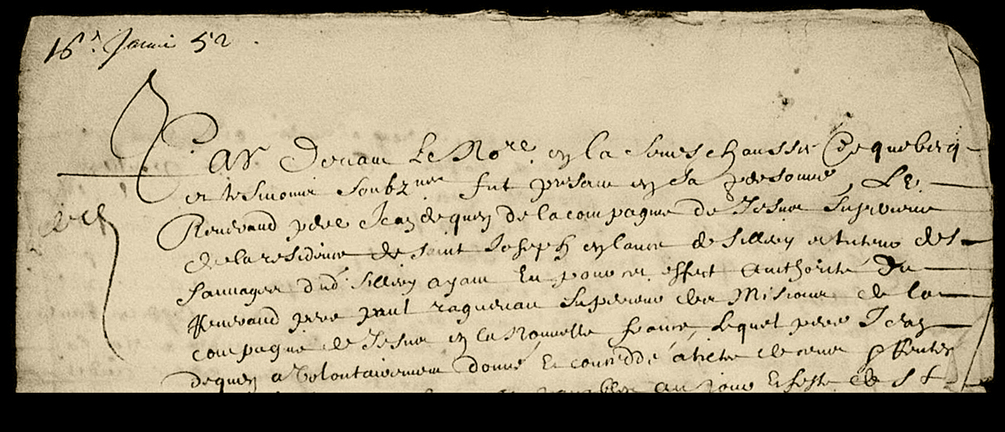 16e Janvi 52
Par devant Le Nore en la Seneschaussée de quebecq
et tesmoins soubznez fut present en sa personne, Le
Reverand pere Jean dequen de la compagnie de Jesus Superieur
de la residence de saint Joseph en lance de Sillery et tuteur des
sauvages dud. Sillery ayant En pouvoir effect authorité du
Reverand pere paul ragueneau superieur des Missions de la
compagnie de Jesus en la Nouvelle france, Lequel pere Jean
dequen a Volontairement donné Et conceddé à tiltre de cens Rentes
au jour Et feste de St